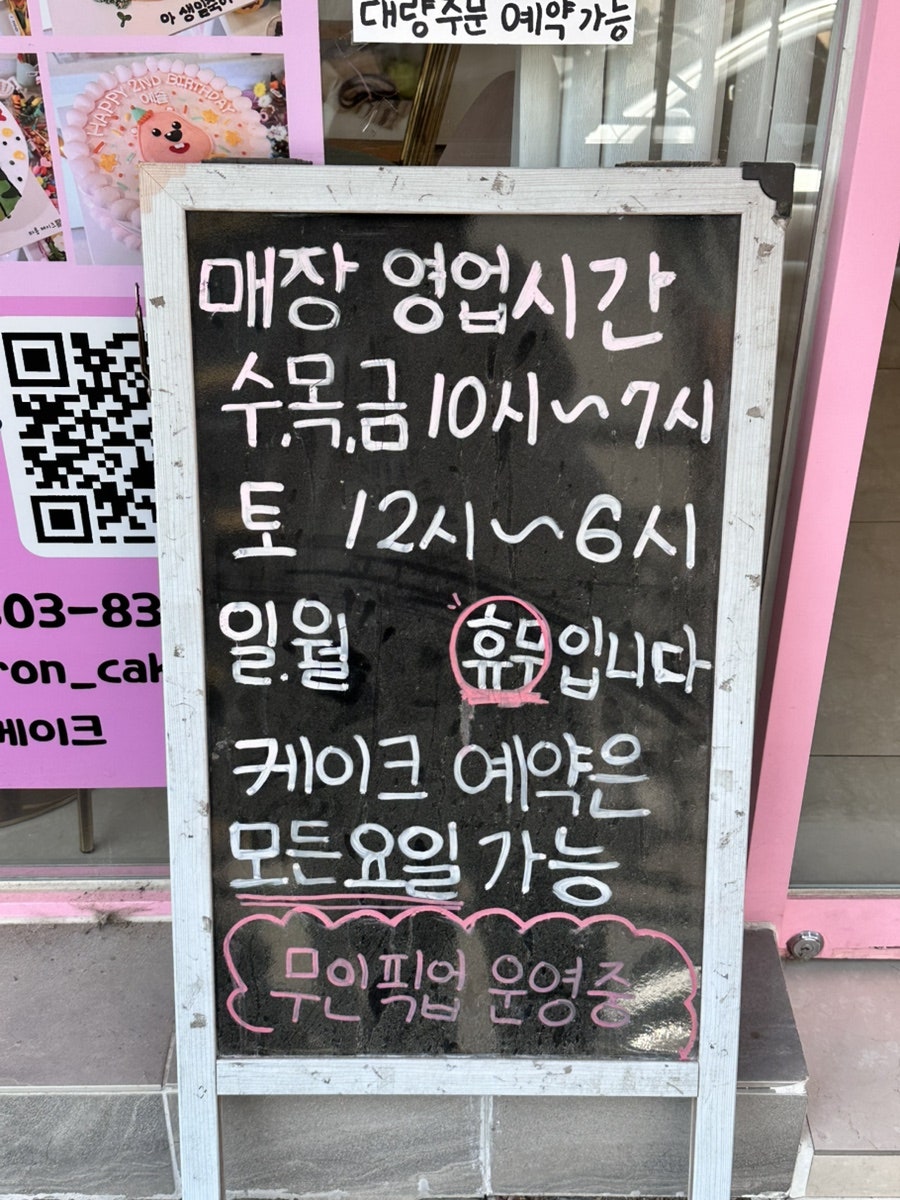 아 생일축하
대량주문 예약가능
HAPPY 2ND BIRTHDAY
예솔
매장 영업시간
수.목.금 10시~7시
토 12시~6시
일.월 휴무입니다
케이크 예약은
모든요일 가능
무인픽업 운영중
303-83
ron_cak
케이크